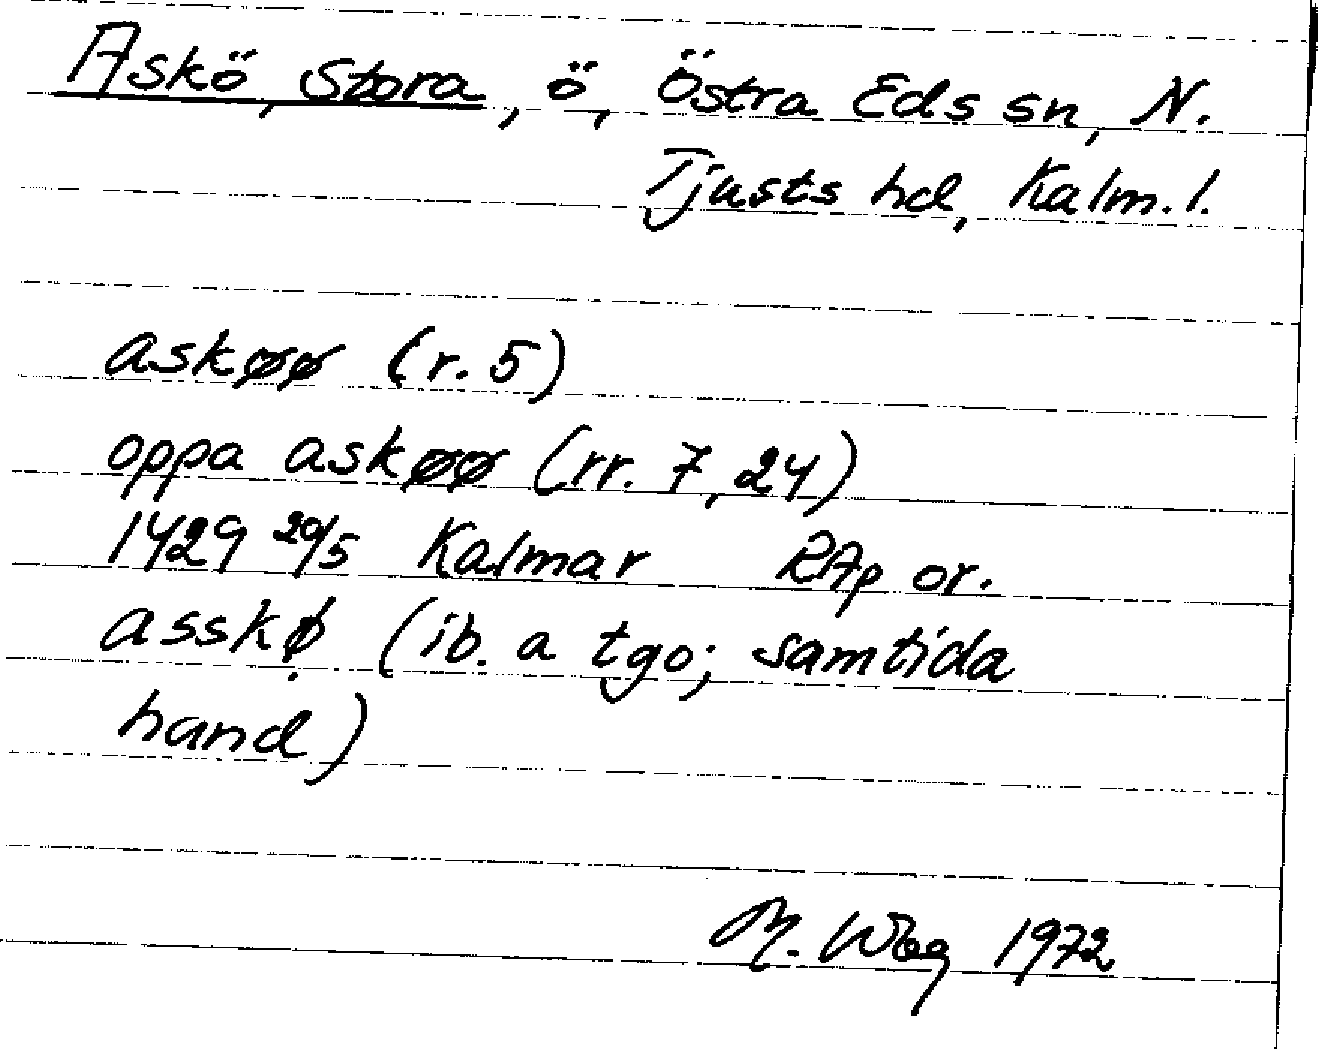 Askö, Stora, ö, Östra Eds sn, N.
Tjusts hd, Kalm. l.
askøø (r. 5)
oppa askøø (rr. 7, 24)
1429 20/5 Kalmar RAp or.
asskø (ib. a tgo; samtida
hand)
M. Wbg 1972